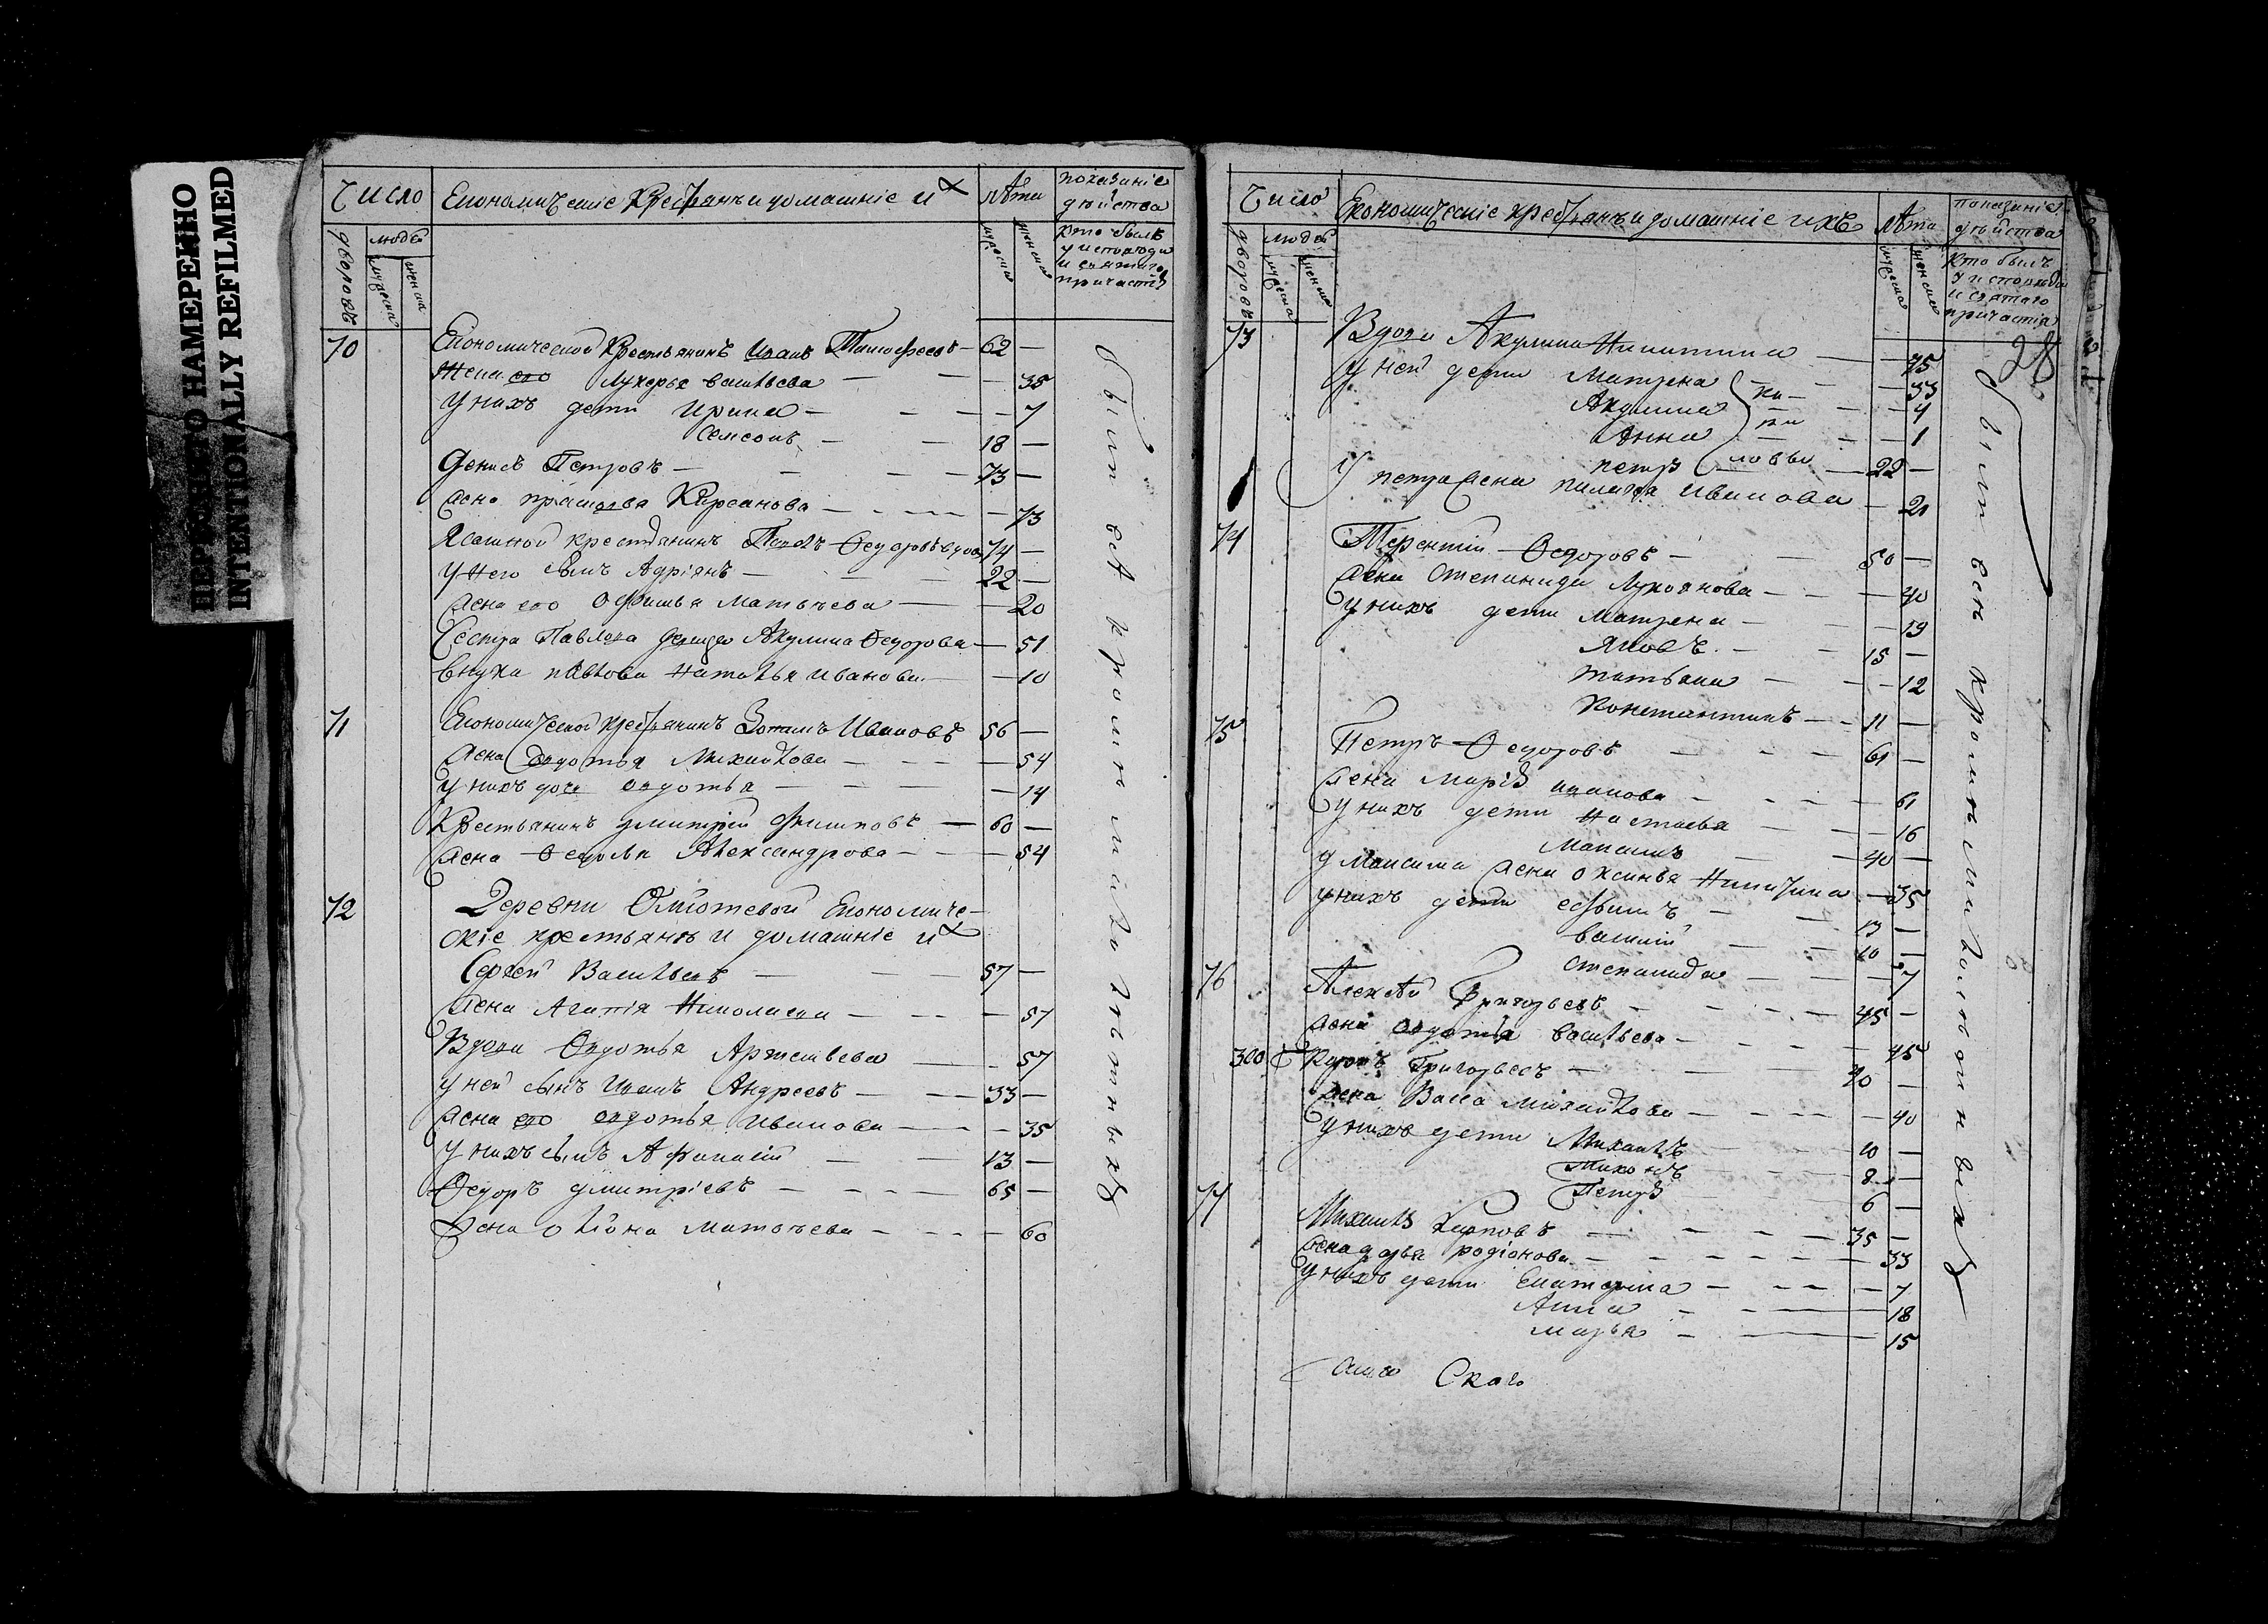 НЕРЕЗКО НАМЕРЕННО
INTENTIONALLY REFILMED
Число
Економическіе Крестьянъ и домашніе их
лѣта
показаніе
дѣйства
дворовъ
людей
мужеска
женска
мужеска
женска
кто былъ
у исповѣди
и святаго
причастія
70 Економической Крестьянинъ Иванъ Тимофеевъ — 62 —
Жена его Лукерья васильева — — — 35
У нихъ дети Ирина — — — 7
Самсонъ — — 18 —
Денисъ Петровъ — — — 73 —
жена прасковья Кирсанова — — — 73
Ясашной крестьянинъ Павелъ Ѳедоровъ вдов 74 —
У него сынъ Адріянъ — — 22 —
жена его Офимья Матвѣева — — 20
Сестра Павлова девица Акулина Ѳедорова — 51
внука павлова Наталья иванова — — 10
71 Економической крестьянинъ Зотъ Ивановъ 56 —
жена Овдотья Михайлова — — — 54
У нихъ дочь овдотья — — — 14
Крестьянинъ дмитрей Филиповъ — 60 —
жена Ѳедосья Александрова — — — 54
72 Деревни Економиче-
скіе крестьянъ и домашніе их
Сергей Васильевъ — — 57 —
жена Агапія Николаева — — — 57
Вдова Овдотья Артемьева — — 57
у ней сынъ Иванъ Андреевъ — — 33 —
жена его овдотья Иванова — — — 35
У нихъ сынъ Афанасій — — 13 —
Ѳедоръ дмитріевъ — — — 65 —
жена Матвѣева — — — 60
были всѣ кромѣ малолѣтныхъ
Число
Економическіе крестьянъ и домашніе ихъ
лѣта
показаніе
дѣйства
дворовъ
людей
мужеска
женска
мужеска
женска
кто былъ
у исповѣди
и святаго
причастія
28
73 Вдова Акулина Никитина — — 75
У ней дети Матрена — — 33
Акулина — — 4
Анна — — 1
петръ — 22 —
У петра жена пелагея иванова — 21
74 Терентій Ѳедоровъ — — 50 —
жена Степанида Лукоянова — — — 40
У нихъ дети Матрена — — 19
Яковъ — — 15 —
татьяна — — — 12
Константинъ — — 11 —
75 Петръ Ѳедоровъ — — — 61 —
жена Марія иванова — — — 61
У нихъ дети Настасья — — — 16
Максимъ — — 40 —
у Максима жена оксинья Никитина — 35
У нихъ дети — — 13 —
василій — — 10 —
степанида — — — 7
76 Алексѣй Григорьевъ — — — 45 —
жена овдотья васильева — — — 45
300 Григорьевъ — — 40 —
жена Васса михайлова — — — 40
У нихъ дети Михаилъ — — 10 —
— — 8 —
Петръ — — 6 —
77 Михаилъ Карповъ — — — 35 —
жена дарья родіонова — — — 33
У нихъ дети Екатерина — — — 7
Анна — — 18
марья — — 15
Скаго
были всѣ кромѣ